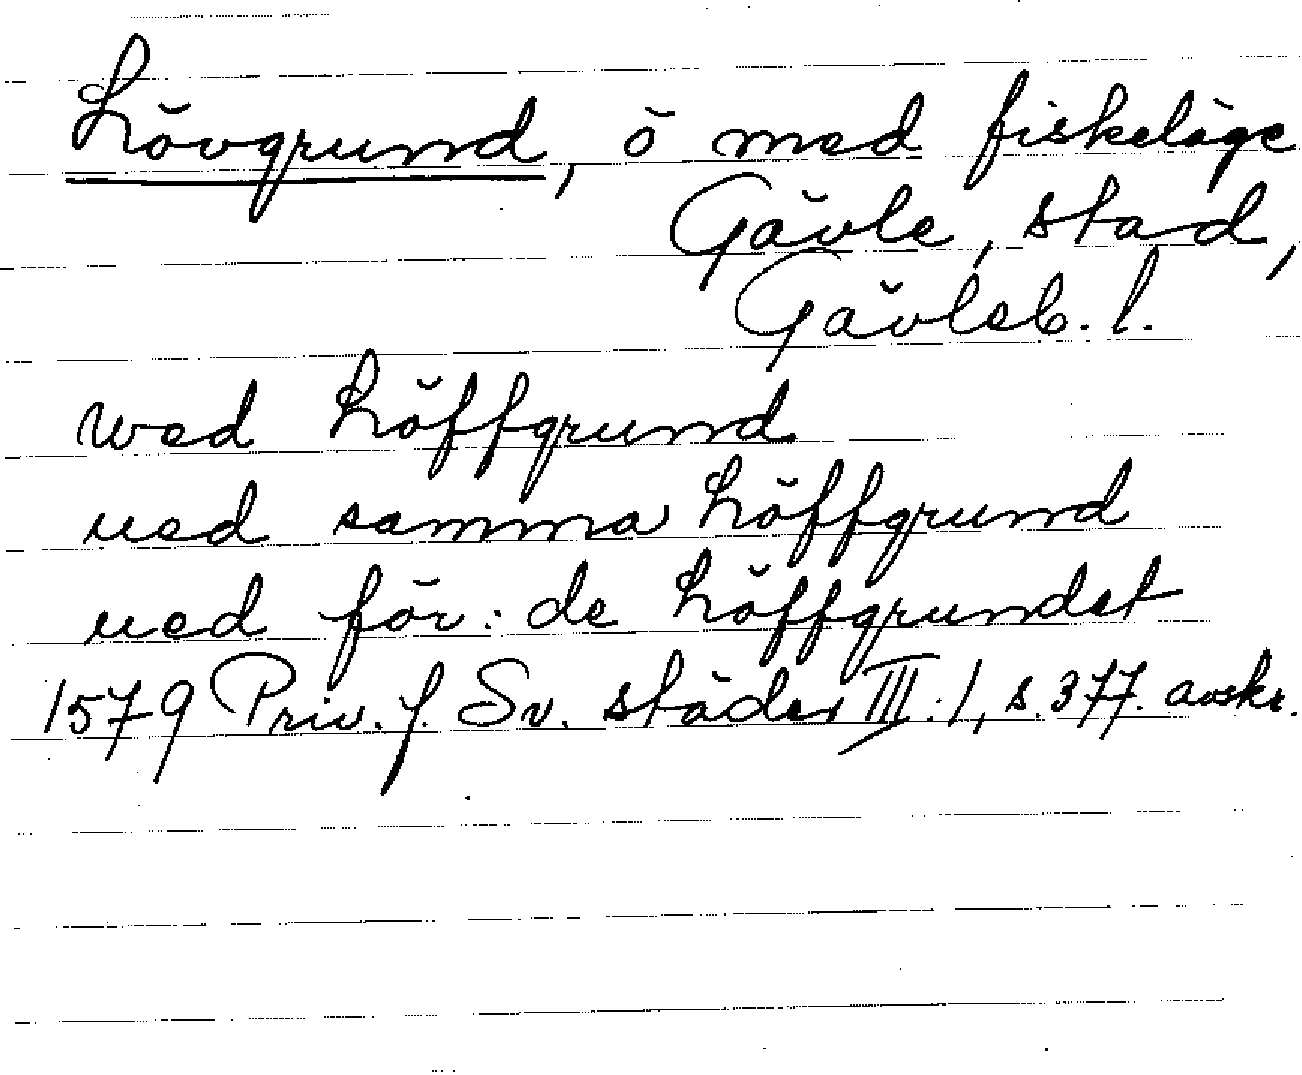 Lövgrund, ö med fiskeläge
Gävle, stad,
Gävleb. l.
wed Löffgrund
ued samma Löffgrund
ued för: de Löffgrundet
1579 Priv. f. Sv. städer III:1, s. 377. avskr.